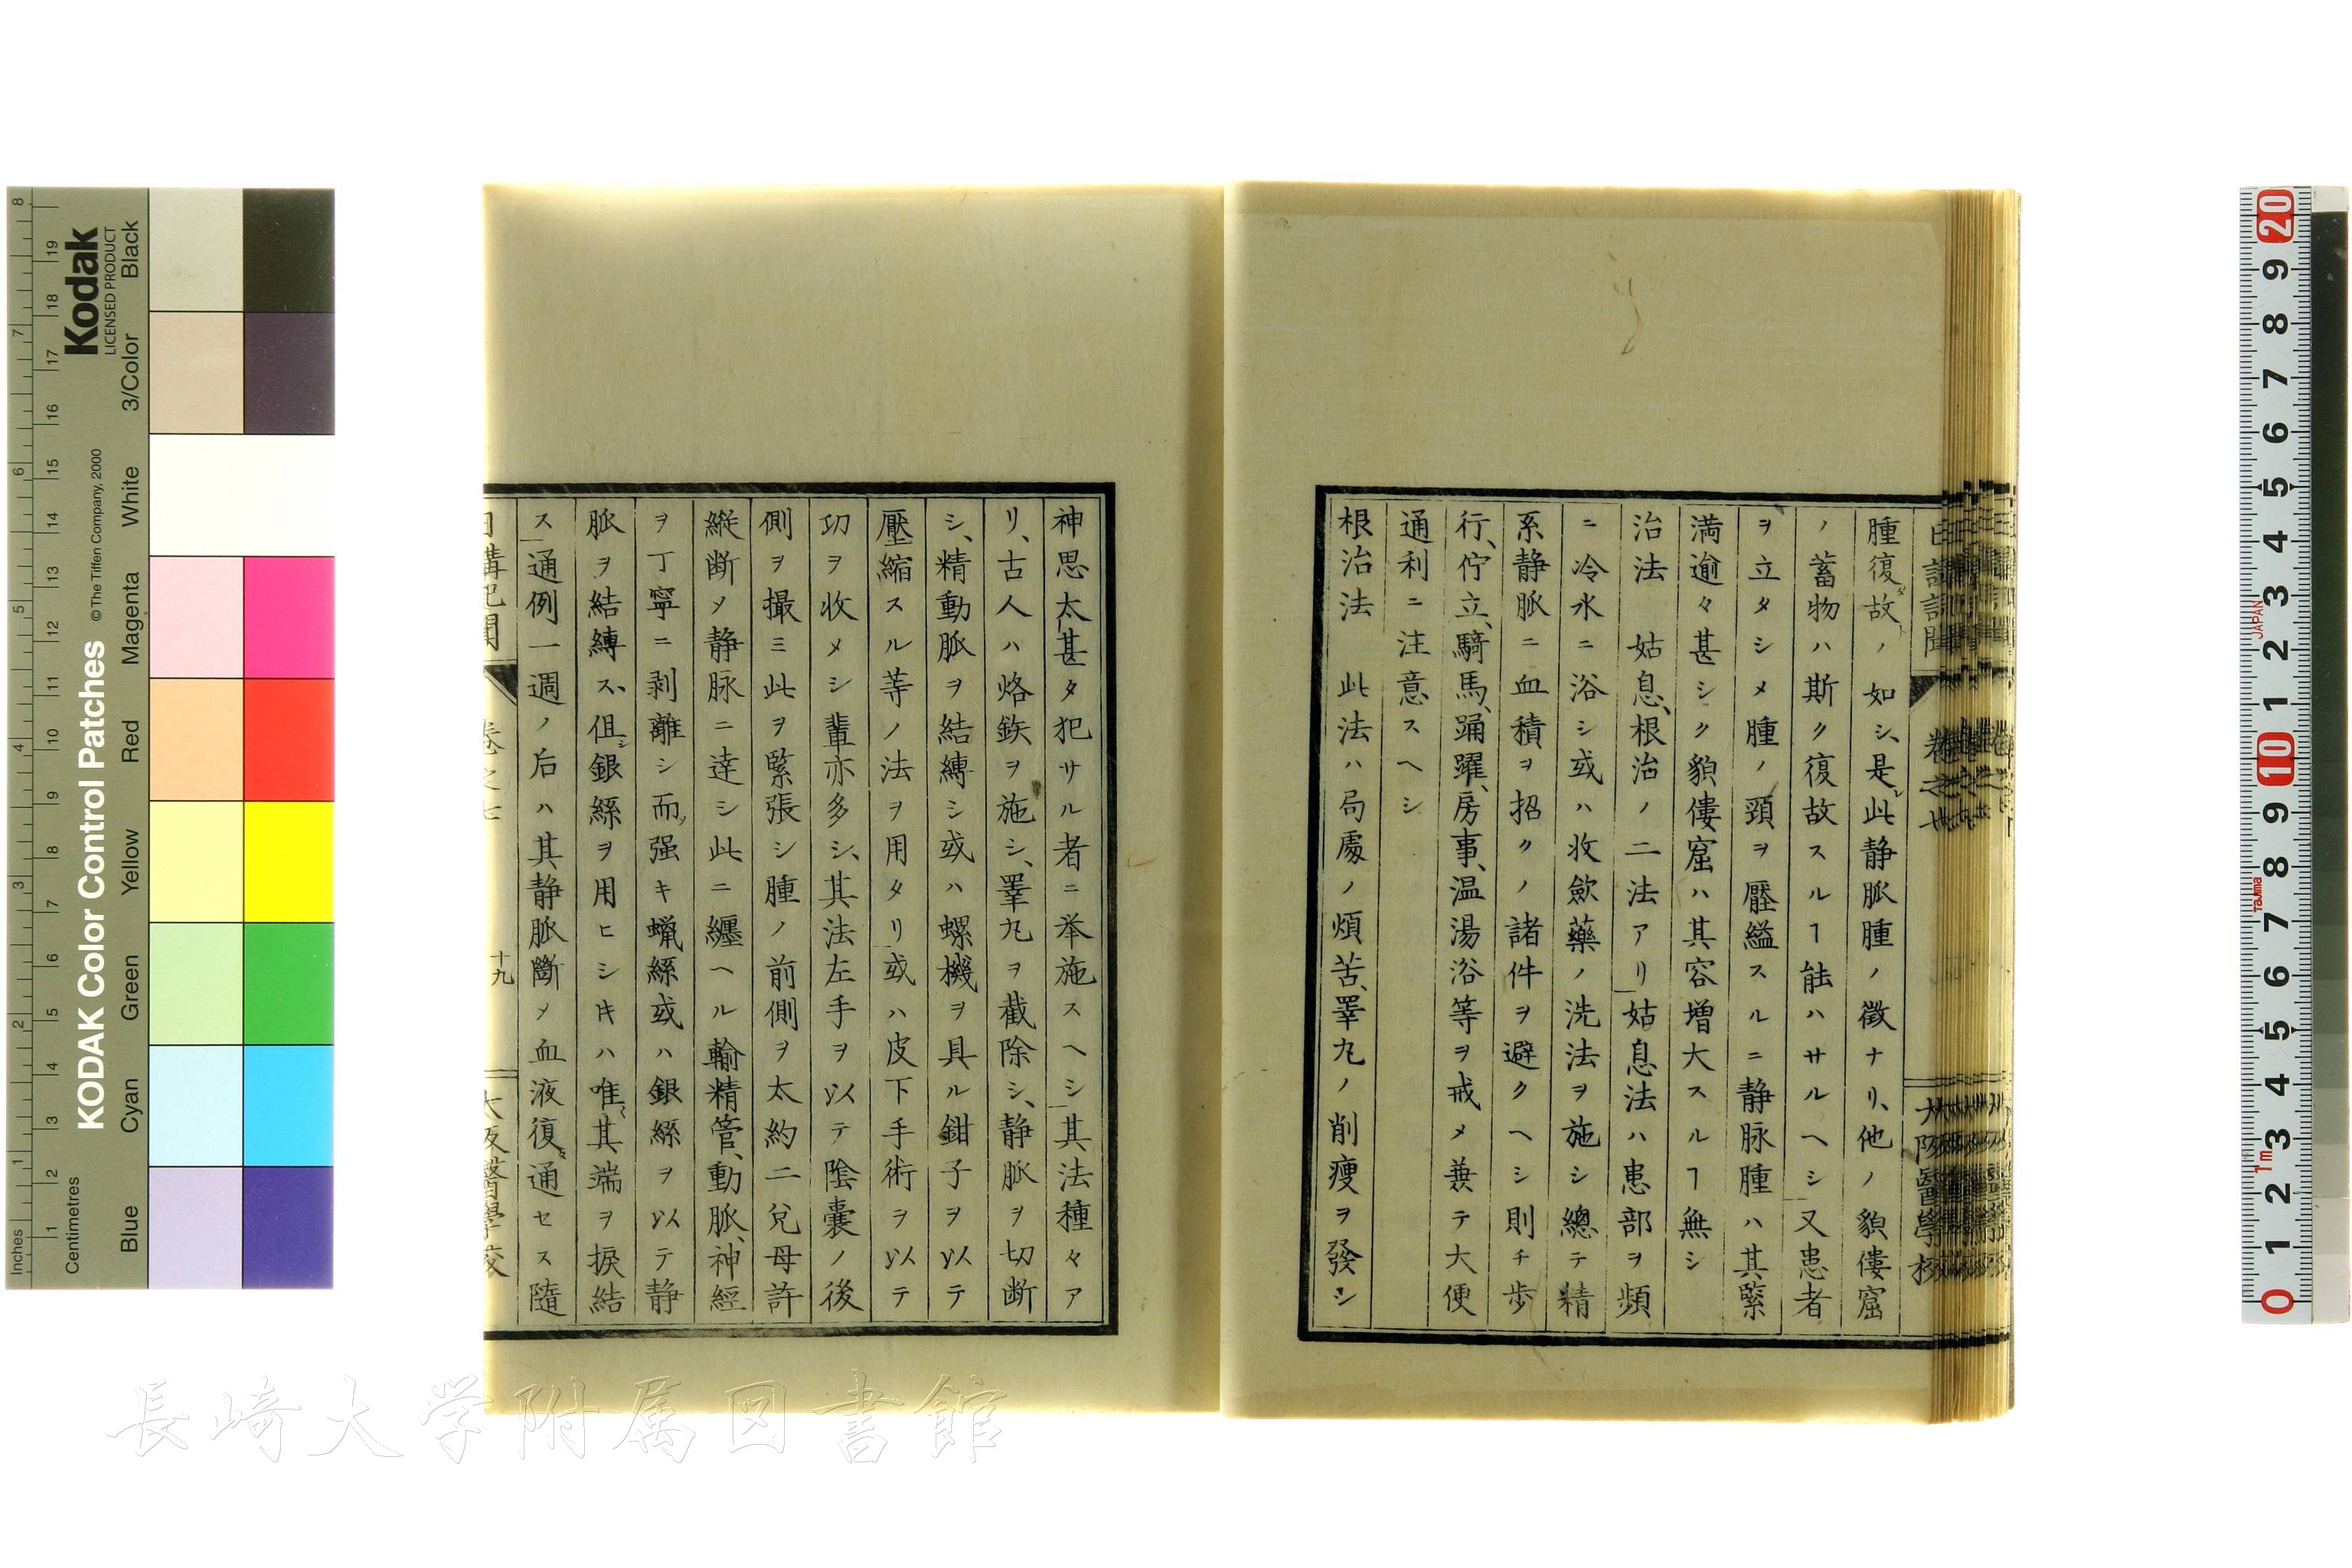 腫復故ノ如シ、是レ此静脈腫ノ徴ナリ、他ノ貌僂窟
ノ蓄物ハ斯ク復故スルヿ能ハサルヘシ又患者
ヲ立タシメ腫ノ頸ヲ壓縊スルニ静脉腫ハ其緊
満逾々甚シク貌僂窟ハ其容増大スルヿ無シ
治法　姑息、根治ノ二法アリ姑息法ハ患部ヲ頻
ニ冷水ニ浴シ或ハ收歛藥ノ洗法ヲ施シ總テ精
系静脈ニ血積ヲ招クノ諸件ヲ避クヘシ則チ歩
行、佇立、騎馬、踊躍、房事、温湯浴等ヲ戒メ兼テ大便
通利ニ注意スヘシ
根治法　此法ハ局處ノ煩苦、睪丸ノ削痩ヲ發シ
神思太甚タ犯サル者ニ挙施スヘシ其法種々ア
リ、古人ハ烙鉄ヲ施シ、睪丸ヲ截除シ、静脈ヲ切断
シ、精動脈ヲ結縛シ或ハ螺機ヲ具ル鉗子ヲ以テ
壓縮スル等ノ法ヲ用タリ或ハ皮下手術ヲ以テ
功ヲ收メシ輩亦多シ、其法左手ヲ以テ陰嚢ノ後
側ヲ撮ミ此ヲ緊張シ腫ノ前側ヲ太約二兊母許
縦断メ静脉ニ達シ此ニ纒ヘル輸精管、動脈、神經
ヲ丁寧ニ剥離シ而ソ强キ蝋絲或ハ銀絲ヲ以テ静
脈ヲ結縛ス、但シ銀絲ヲ用ヒシキハ唯其端ヲ捩結
ス通例一週ノ后ハ其静脈斷メ血液復タ通セス隨
日講記聞
卷之七
十九
大阪醫學校
Kodak
LICENSED PRODUCT
KODAK Color Control Patches
© The Tiffen Company, 2000
Inches
Centimetres
Blue
Cyan
Green
Yellow
Red
Magenta
White
3/Color
Black
長崎大学附属図書館
JAPAN
Tajima
1m